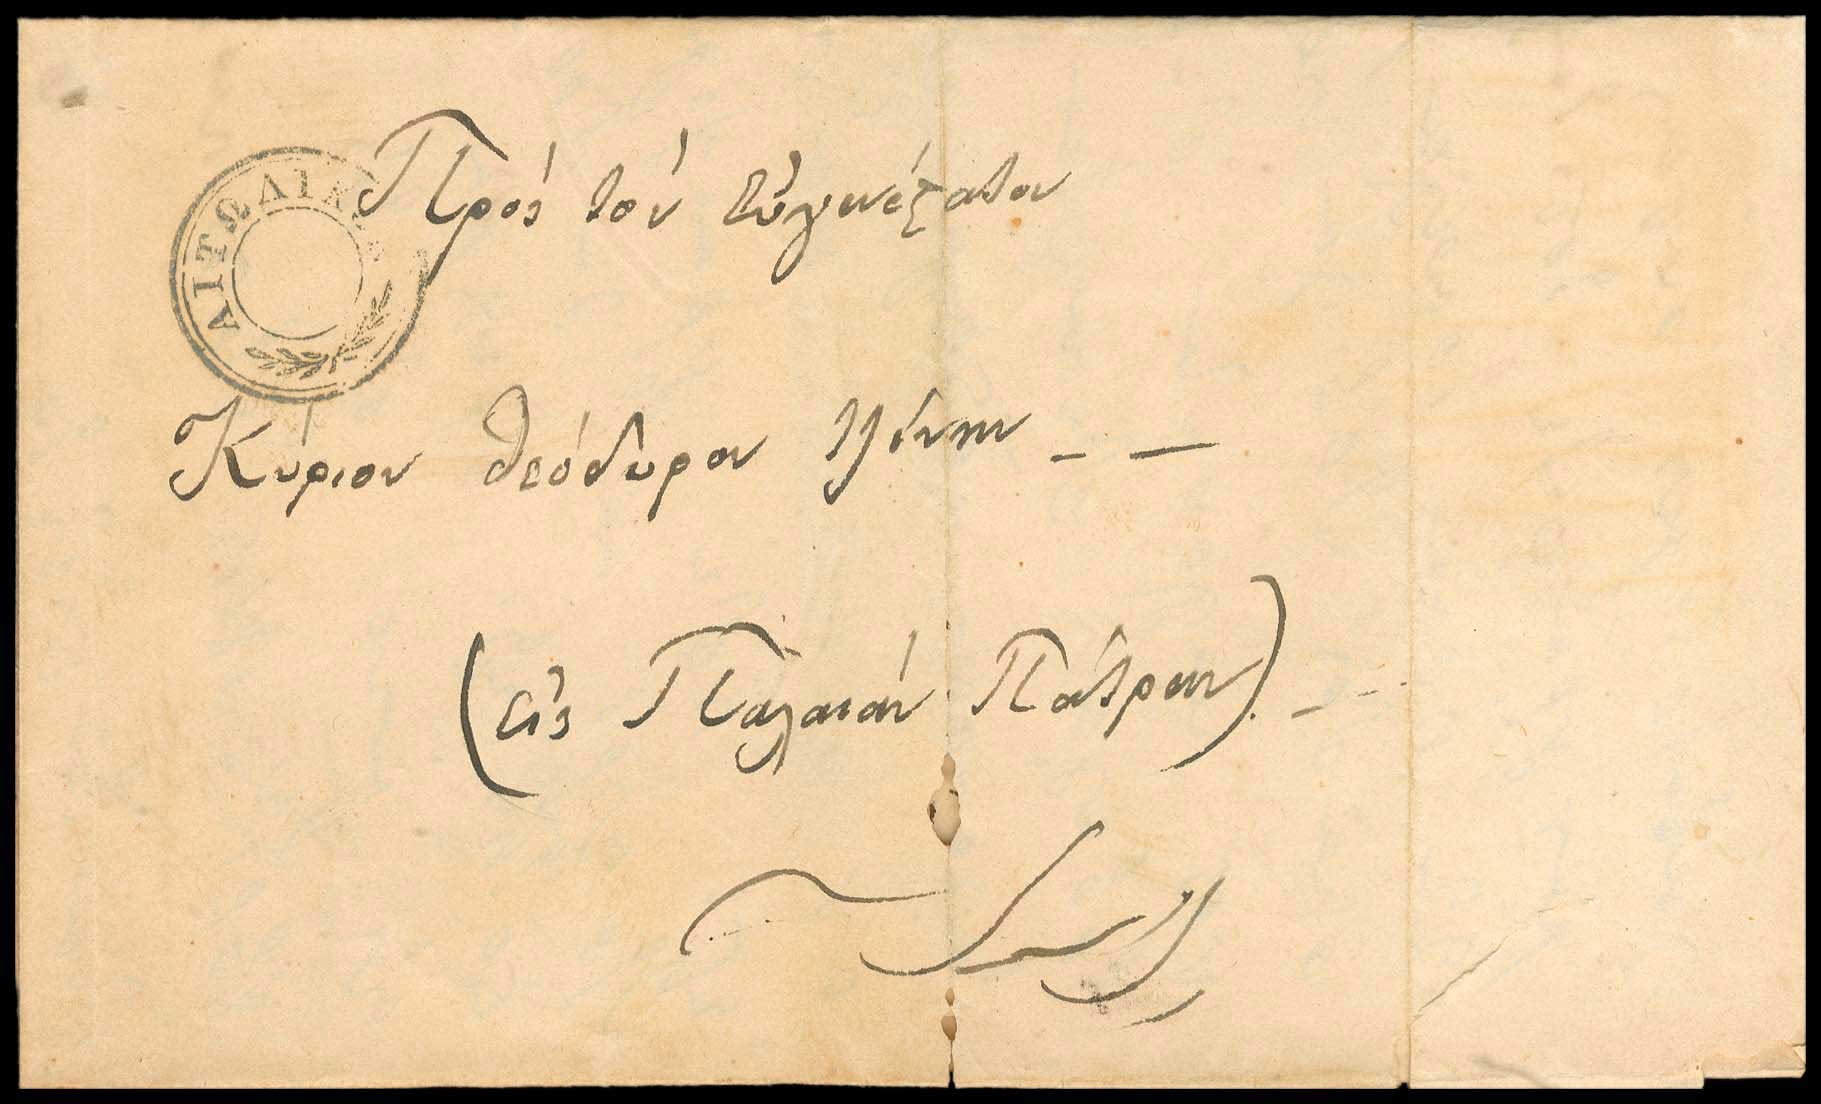 ΑΙΤΩΛΙΚ
Πρός τόν εὐγενέστατον
Κύριον Θεόδωρον
(εἰς Παλαιάν Πάτραν)